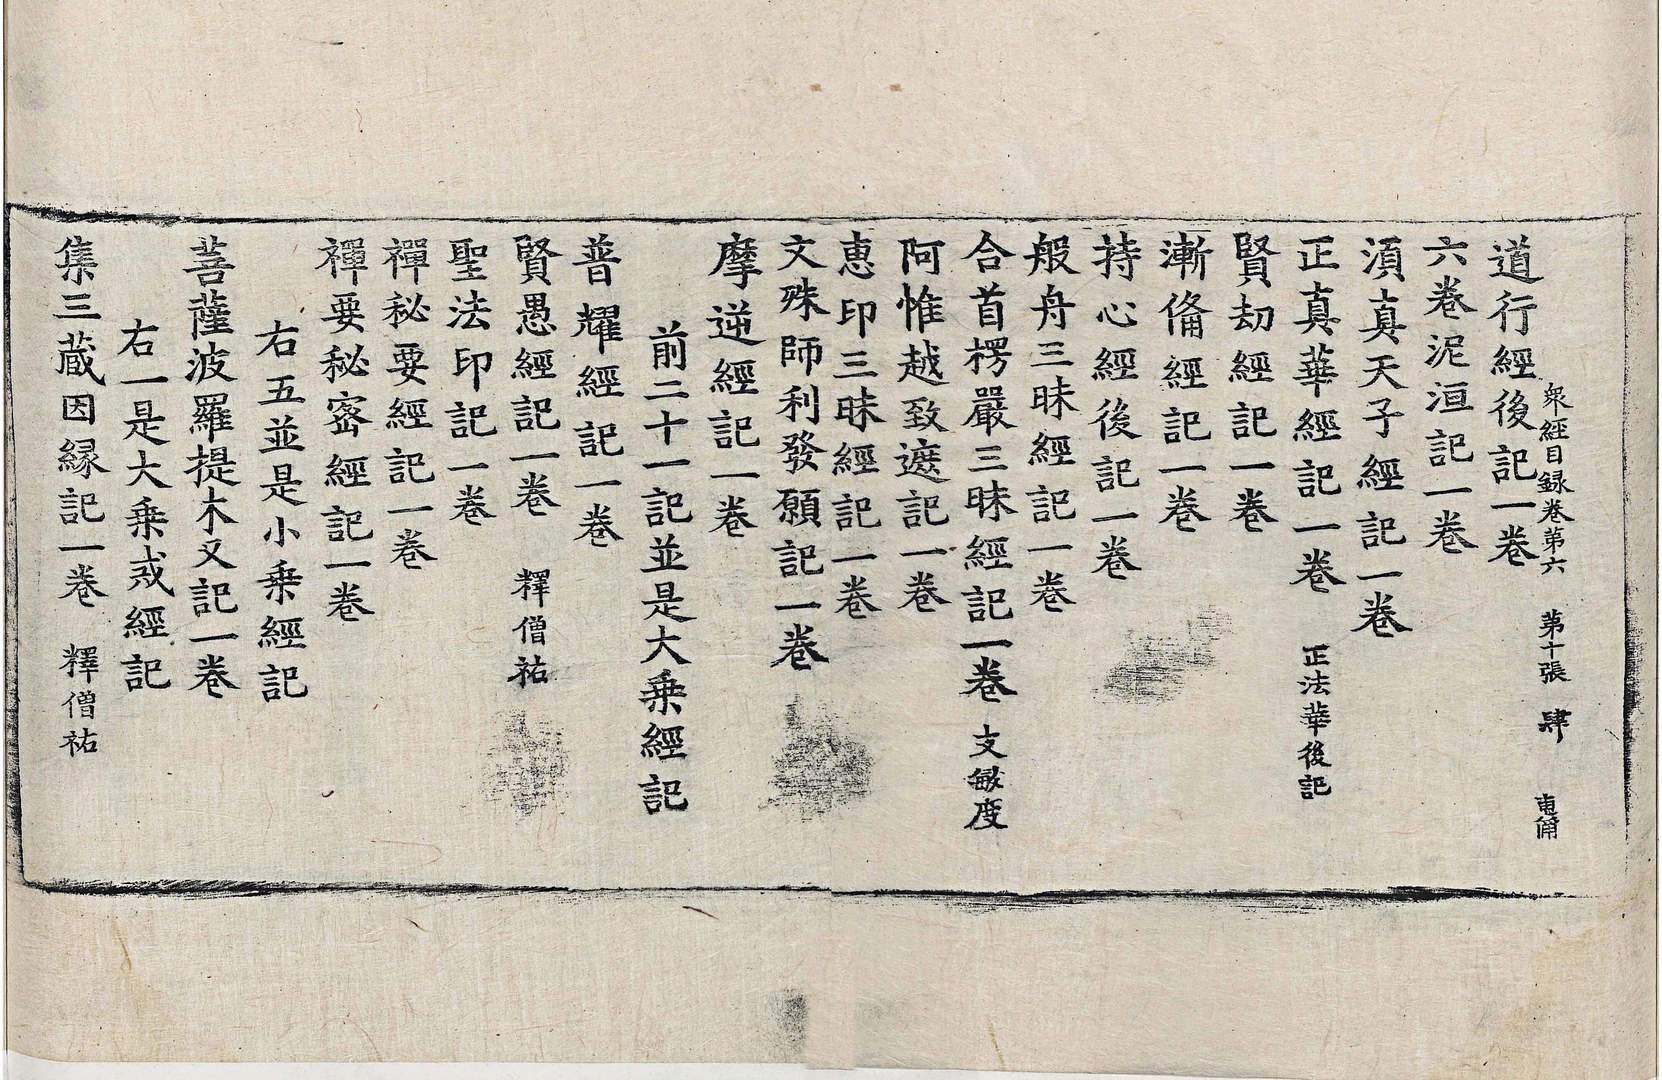 衆經目録卷第六 第十張 肆
道行經後記一卷
六卷泥洹記一卷
湏真天子經記一卷
正真華經記一卷 正法華後記
賢劫經記一卷
漸俻經記一卷
持心經後記一卷
般舟三昧經記一卷
合首楞嚴三昧經記一卷 支敏度
阿惟越致遮記一卷
惠印三昧經記一卷
文殊師利發願記一卷
摩逆經記一卷
前二十一記並是大乗經記
普耀經記一卷
賢愚經記一卷 釋僧祐
聖法印記一卷
禪秘要經記一卷
禪要秘密經記一卷
右五並是小乗經記
菩薩波羅提木叉記一卷
右一是大乗戒經記
集三蔵因縁記一卷 釋僧祐